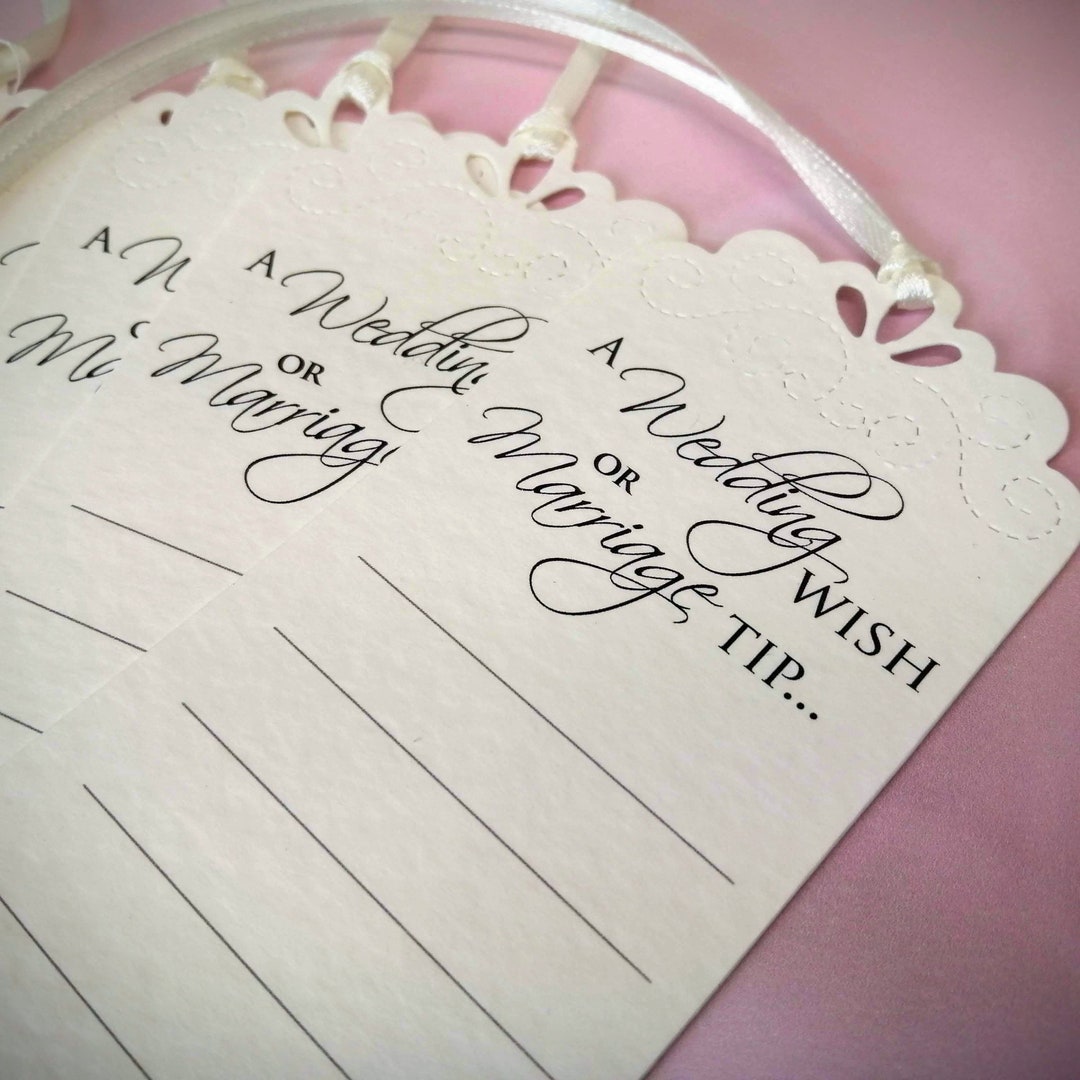 A Wedding WISH
OR
Marriage TIP...
A Weddin
OR
Marriag
A W
Ma